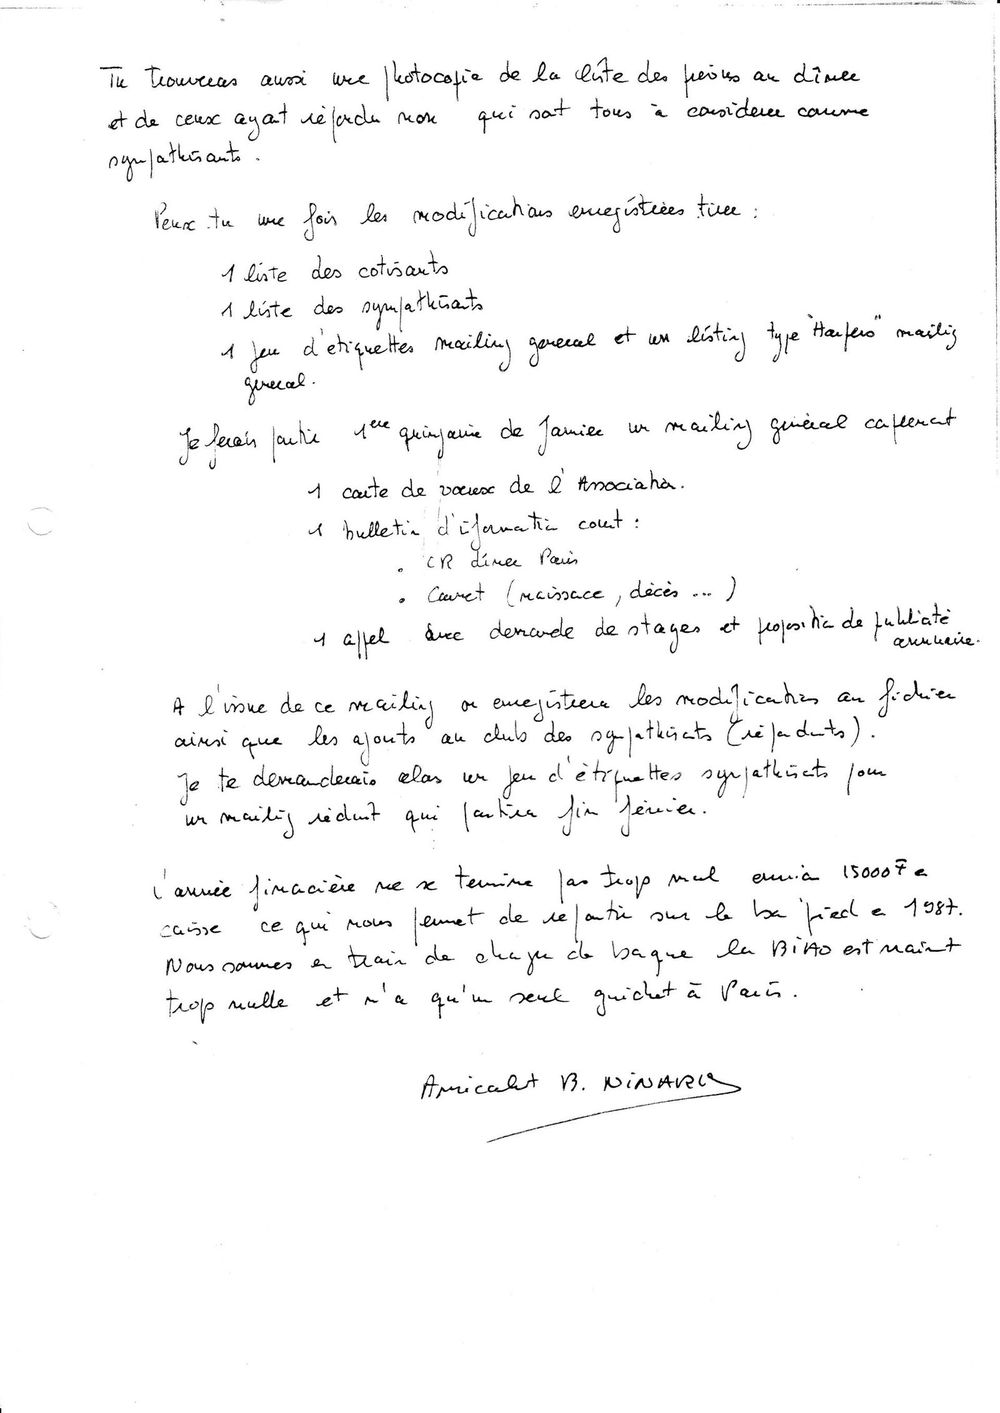 Tu trouveras aussi une photocopie de la liste des prévus au dîner
et de ceux ayant répondu non qui sont tous à considérer comme
sympathisants.
Peux tu une fois les modifications enregistrées tirer :
1 liste des cotisants
1 liste des sympathisants
1 jeu d'étiquettes mailing general et un listing type "Harpers" mailing
general.
Je ferais partir 1ere quinzaine de Janvier un mailing général comprenant
1 carte de voeux de l'Association.
1 bulletin d'information court :
. CR dîner Paris
. Carnet (naissance, décès ... )
1 appel avec demande de stages et proposition de publicité
annuaire.
A l'issue de ce mailing on enregistrera les modifications au fichier
ainsi que les ajouts au club des sympathisants (répondants).
Je te demanderais alors un jeu d'étiquettes sympathisants pour
un mailing réduit qui partira fin février.
L'année financière ne se termine pas trop mal environ 15000 F en
caisse ce qui nous permet de repartir sur le bon pied en 1987.
Nous sommes en train de changer de banque la BIAO est vraiment
trop nulle et n'a qu'un seul guichet à Paris.
Amicalement B. NINARD